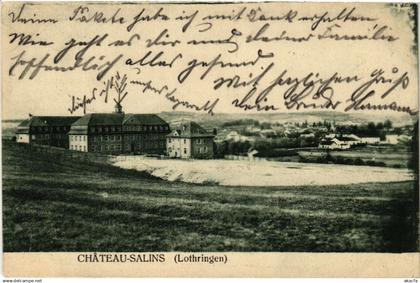 Deine Pakete habe ich mit Dank erhalten
Wie geht es dir und deiner Familie
hoffendlich alles zum
besten Mit herzlichem Gruß
dein Bruder Hermann
CHÂTEAU-SALINS (Lothringen)